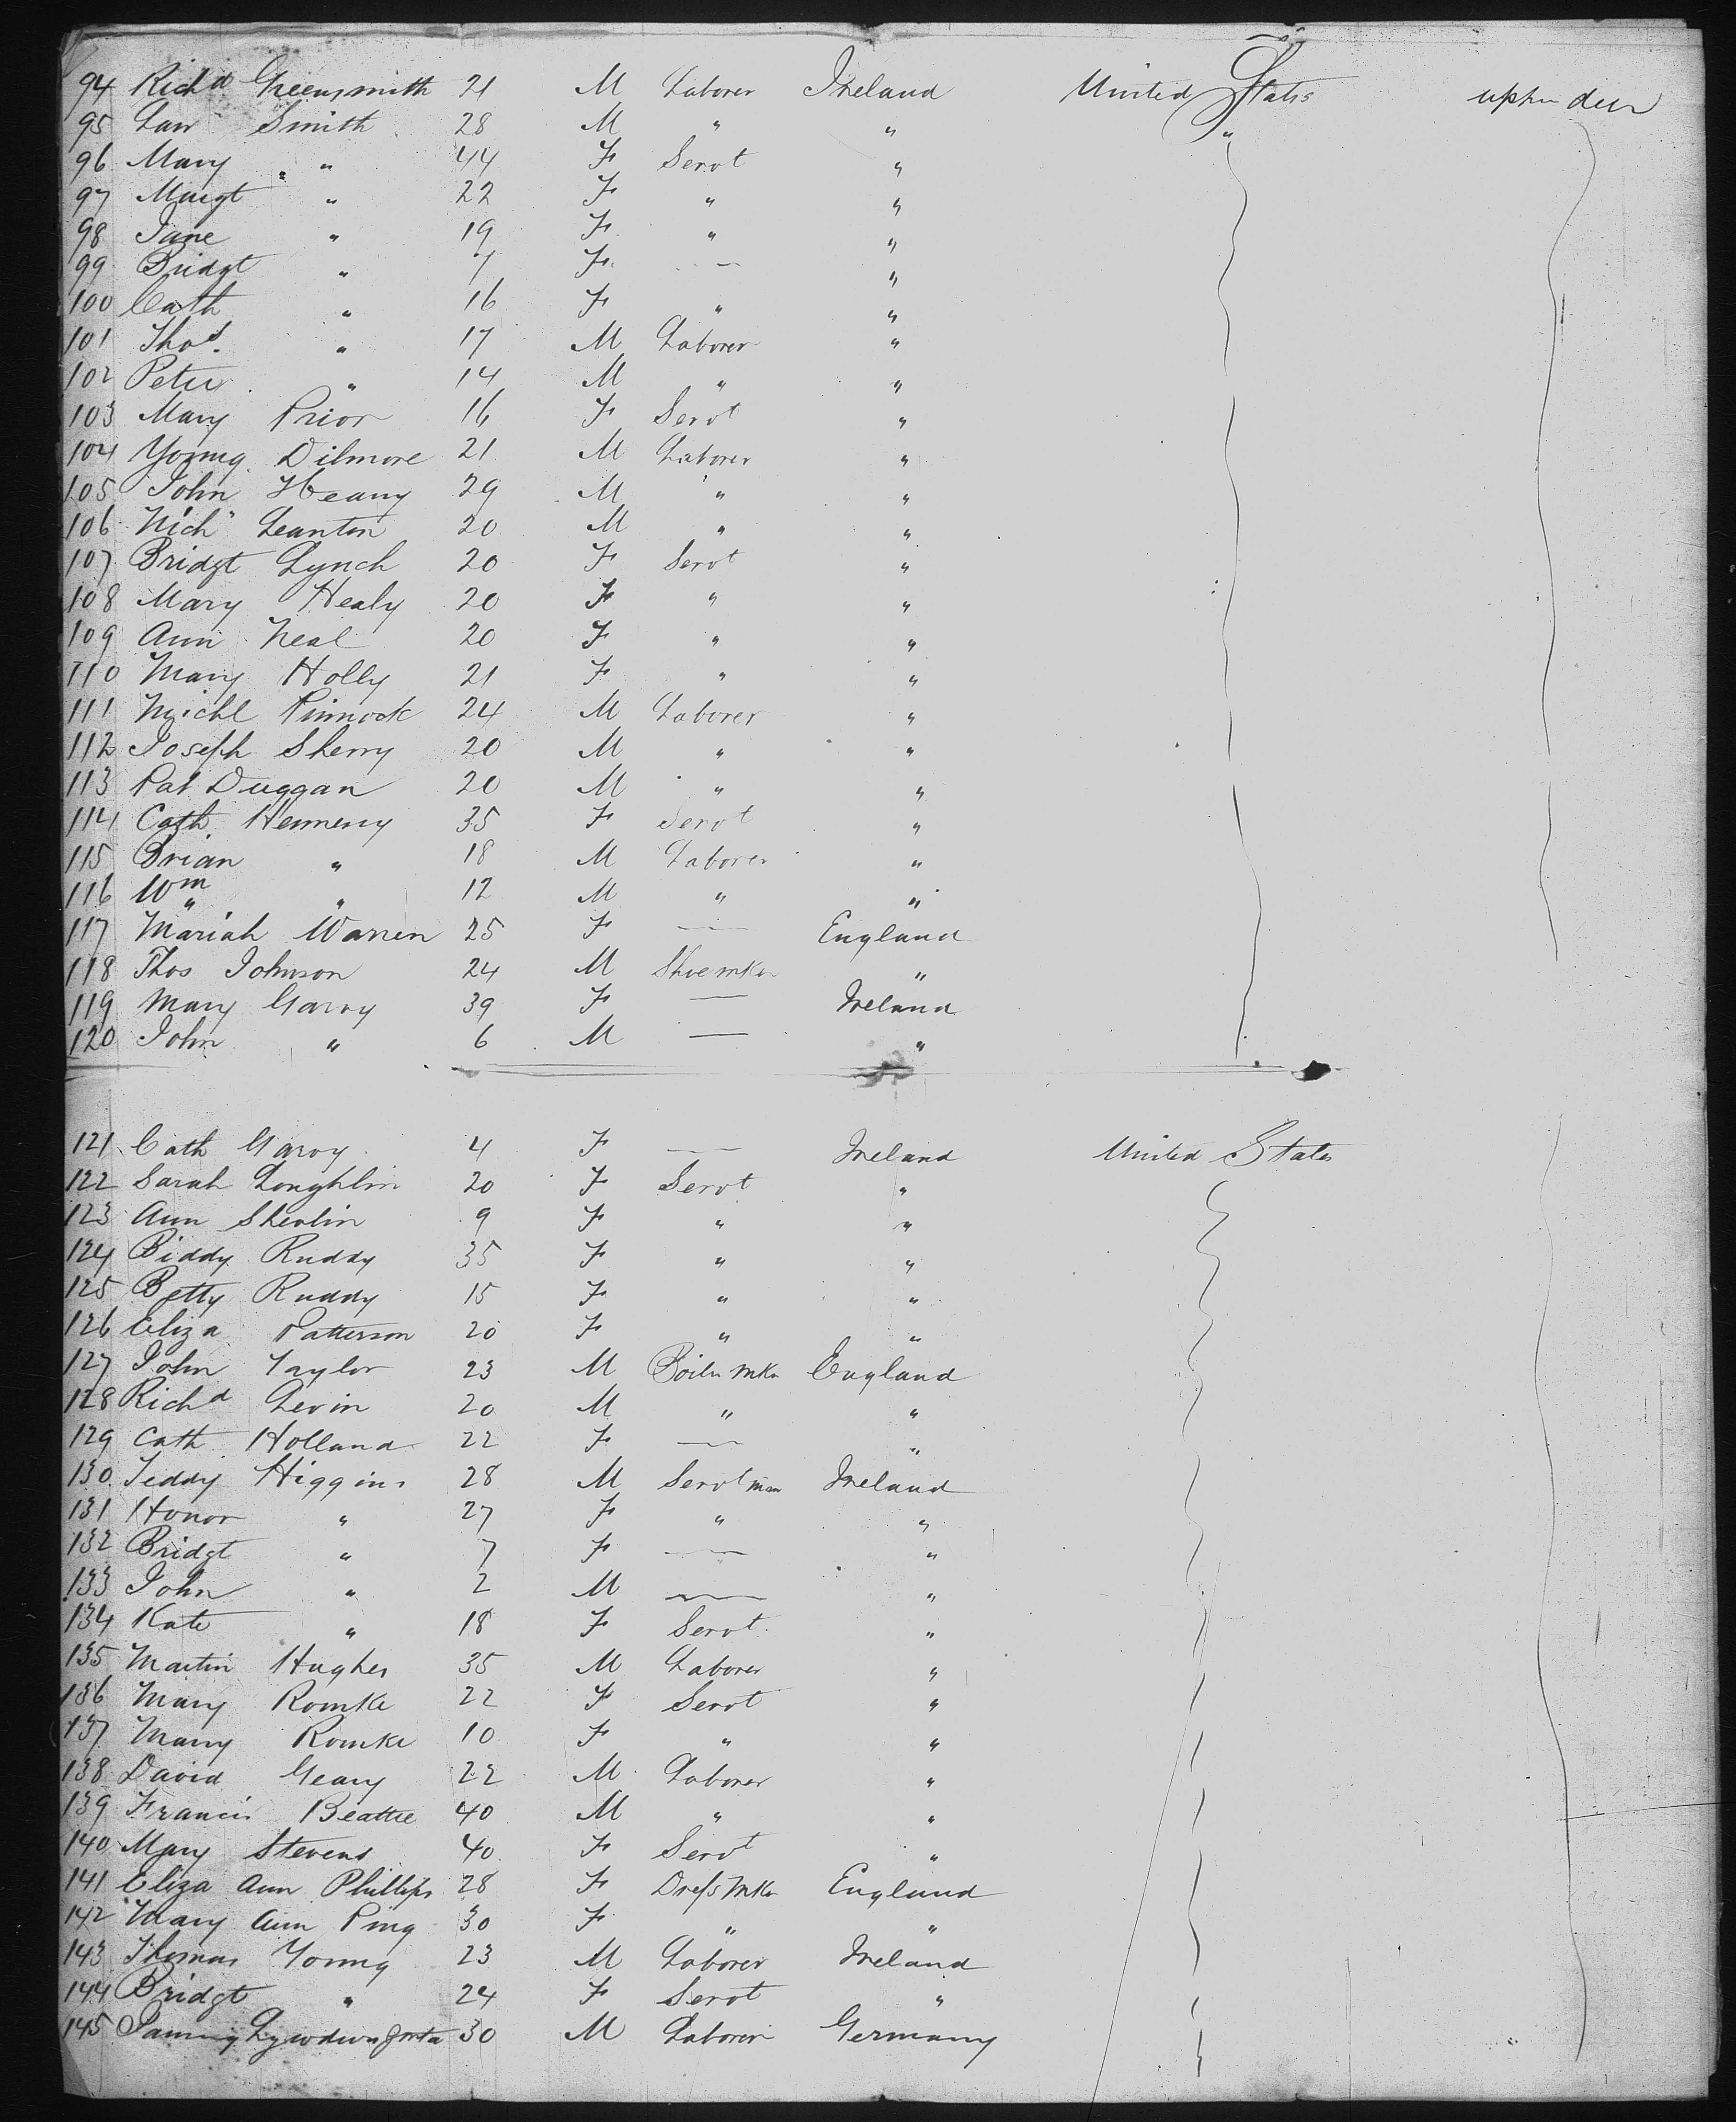 94 Richd Greensmith 21 M Laborer Ireland United States upper deck
95 Law Smith 28 M " " "
96 Mary " 44 F Servt "
97 Margt " 22 F " "
98 Jane " 19 F " "
99 Bridgt " 7 F — "
100 Cath " 16 F " "
101 Thos. " 17 M Laborer "
102 Peter " 14 M " "
103 Mary Prior 16 F Servt "
104 Young Dilmore 21 M Laborer "
105 John Heany 29 M " "
106 Nich" Leanton 20 M " "
107 Bridgt Lynch 20 F Servt "
108 Mary Healy 20 F " "
109 Ann Neal 20 F " "
110 Mary Holly 21 F " "
111 Michl Pinnock 24 M Laborer "
112 Joseph Sherry 20 M " "
113 Pat Duggan 20 M " "
114 Cath Hennesy 35 F Servt "
115 Brian " 18 M Laborer "
116 Wm " 12 M " "
117 Mariah Warren 25 F — England
118 Thos Johnson 24 M Shoemkr "
119 Mary Garvy 39 F — Ireland
120 John " 6 M — "
121 Cath Garvy 4 F — Ireland United States
122 Sarah Loughlin 20 F Servt "
123 Ann Shevlin 9 F " "
124 Biddy Ruddy 35 F " "
125 Betty Ruddy 15 F " "
126 Eliza Patterson 20 F " "
127 John Taylor 23 M Boiler Mkr England
128 Richd Levin 20 M " "
129 Cath Holland 22 F — "
130 Teddy Higgins 28 M Servt man Ireland
131 Honor " 27 F " "
132 Bridgt " 7 F — "
133 John " 2 M — "
134 Kate " 18 F Servt "
135 Martin Hughes 35 M Laborer "
136 Mary Rourke 22 F Servt "
137 Mary Rourke 10 F " "
138 David Geary 22 M Laborer "
139 Francis Beattie 40 M " "
140 Mary Stevens 40 F Servt "
141 Eliza Ann Phillips 28 F Dress Mkr England
142 Mary Ann Ping 30 F " "
143 Thomas Young 23 M Laborer Ireland
144 Bridgt " 24 F Servt "
145 30 M Laborer Germany